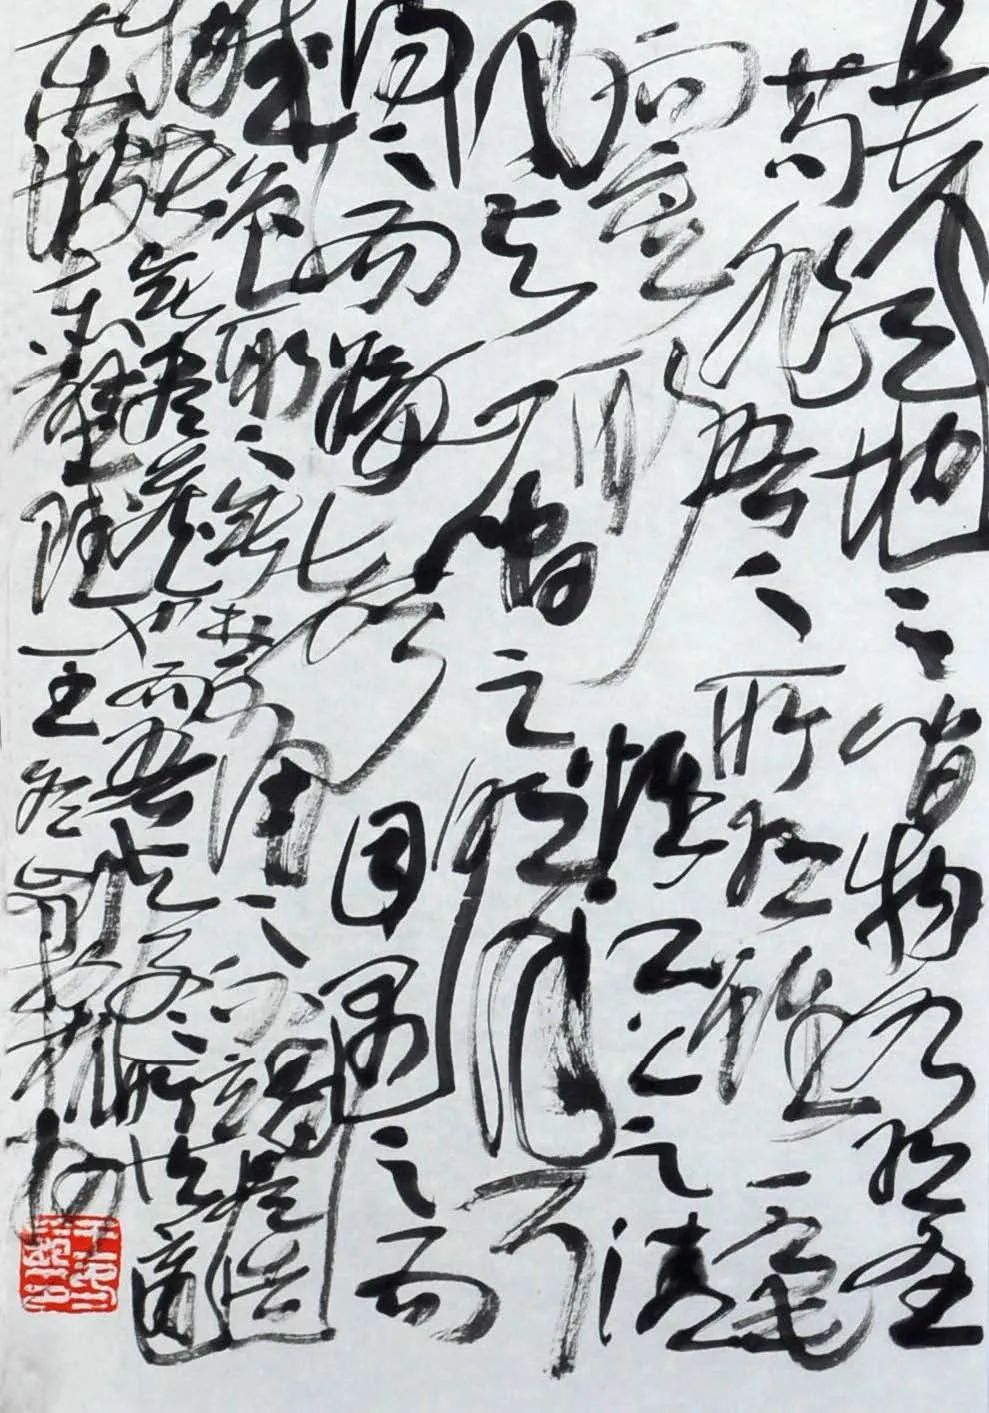 且夫天地之間物各有主
苟非吾之所有雖一毫
而莫取惟江上之清
風与山間之明月耳
得之而為聲目遇之而
成色取之無禁用之不竭是造
物者之無盡藏也而吾与子之所共適
東坡 王冬齡